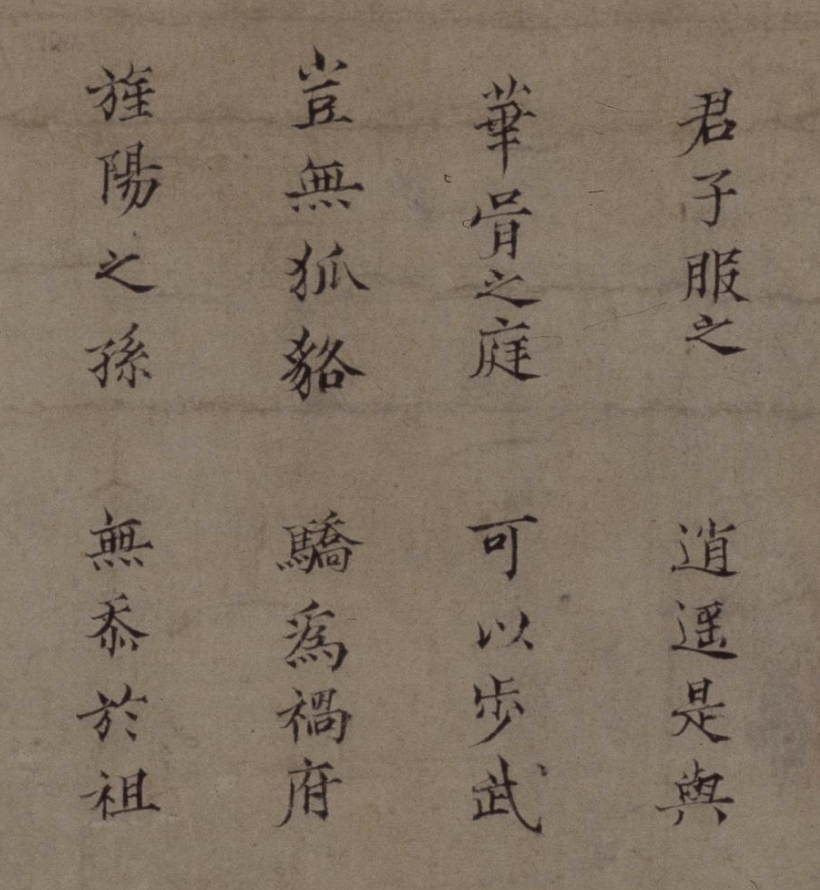 君子服之 逍遥是與
華胥之庭 可以步武
豈無狐貉 驕爲禍府
旌陽之孫 無忝於祖